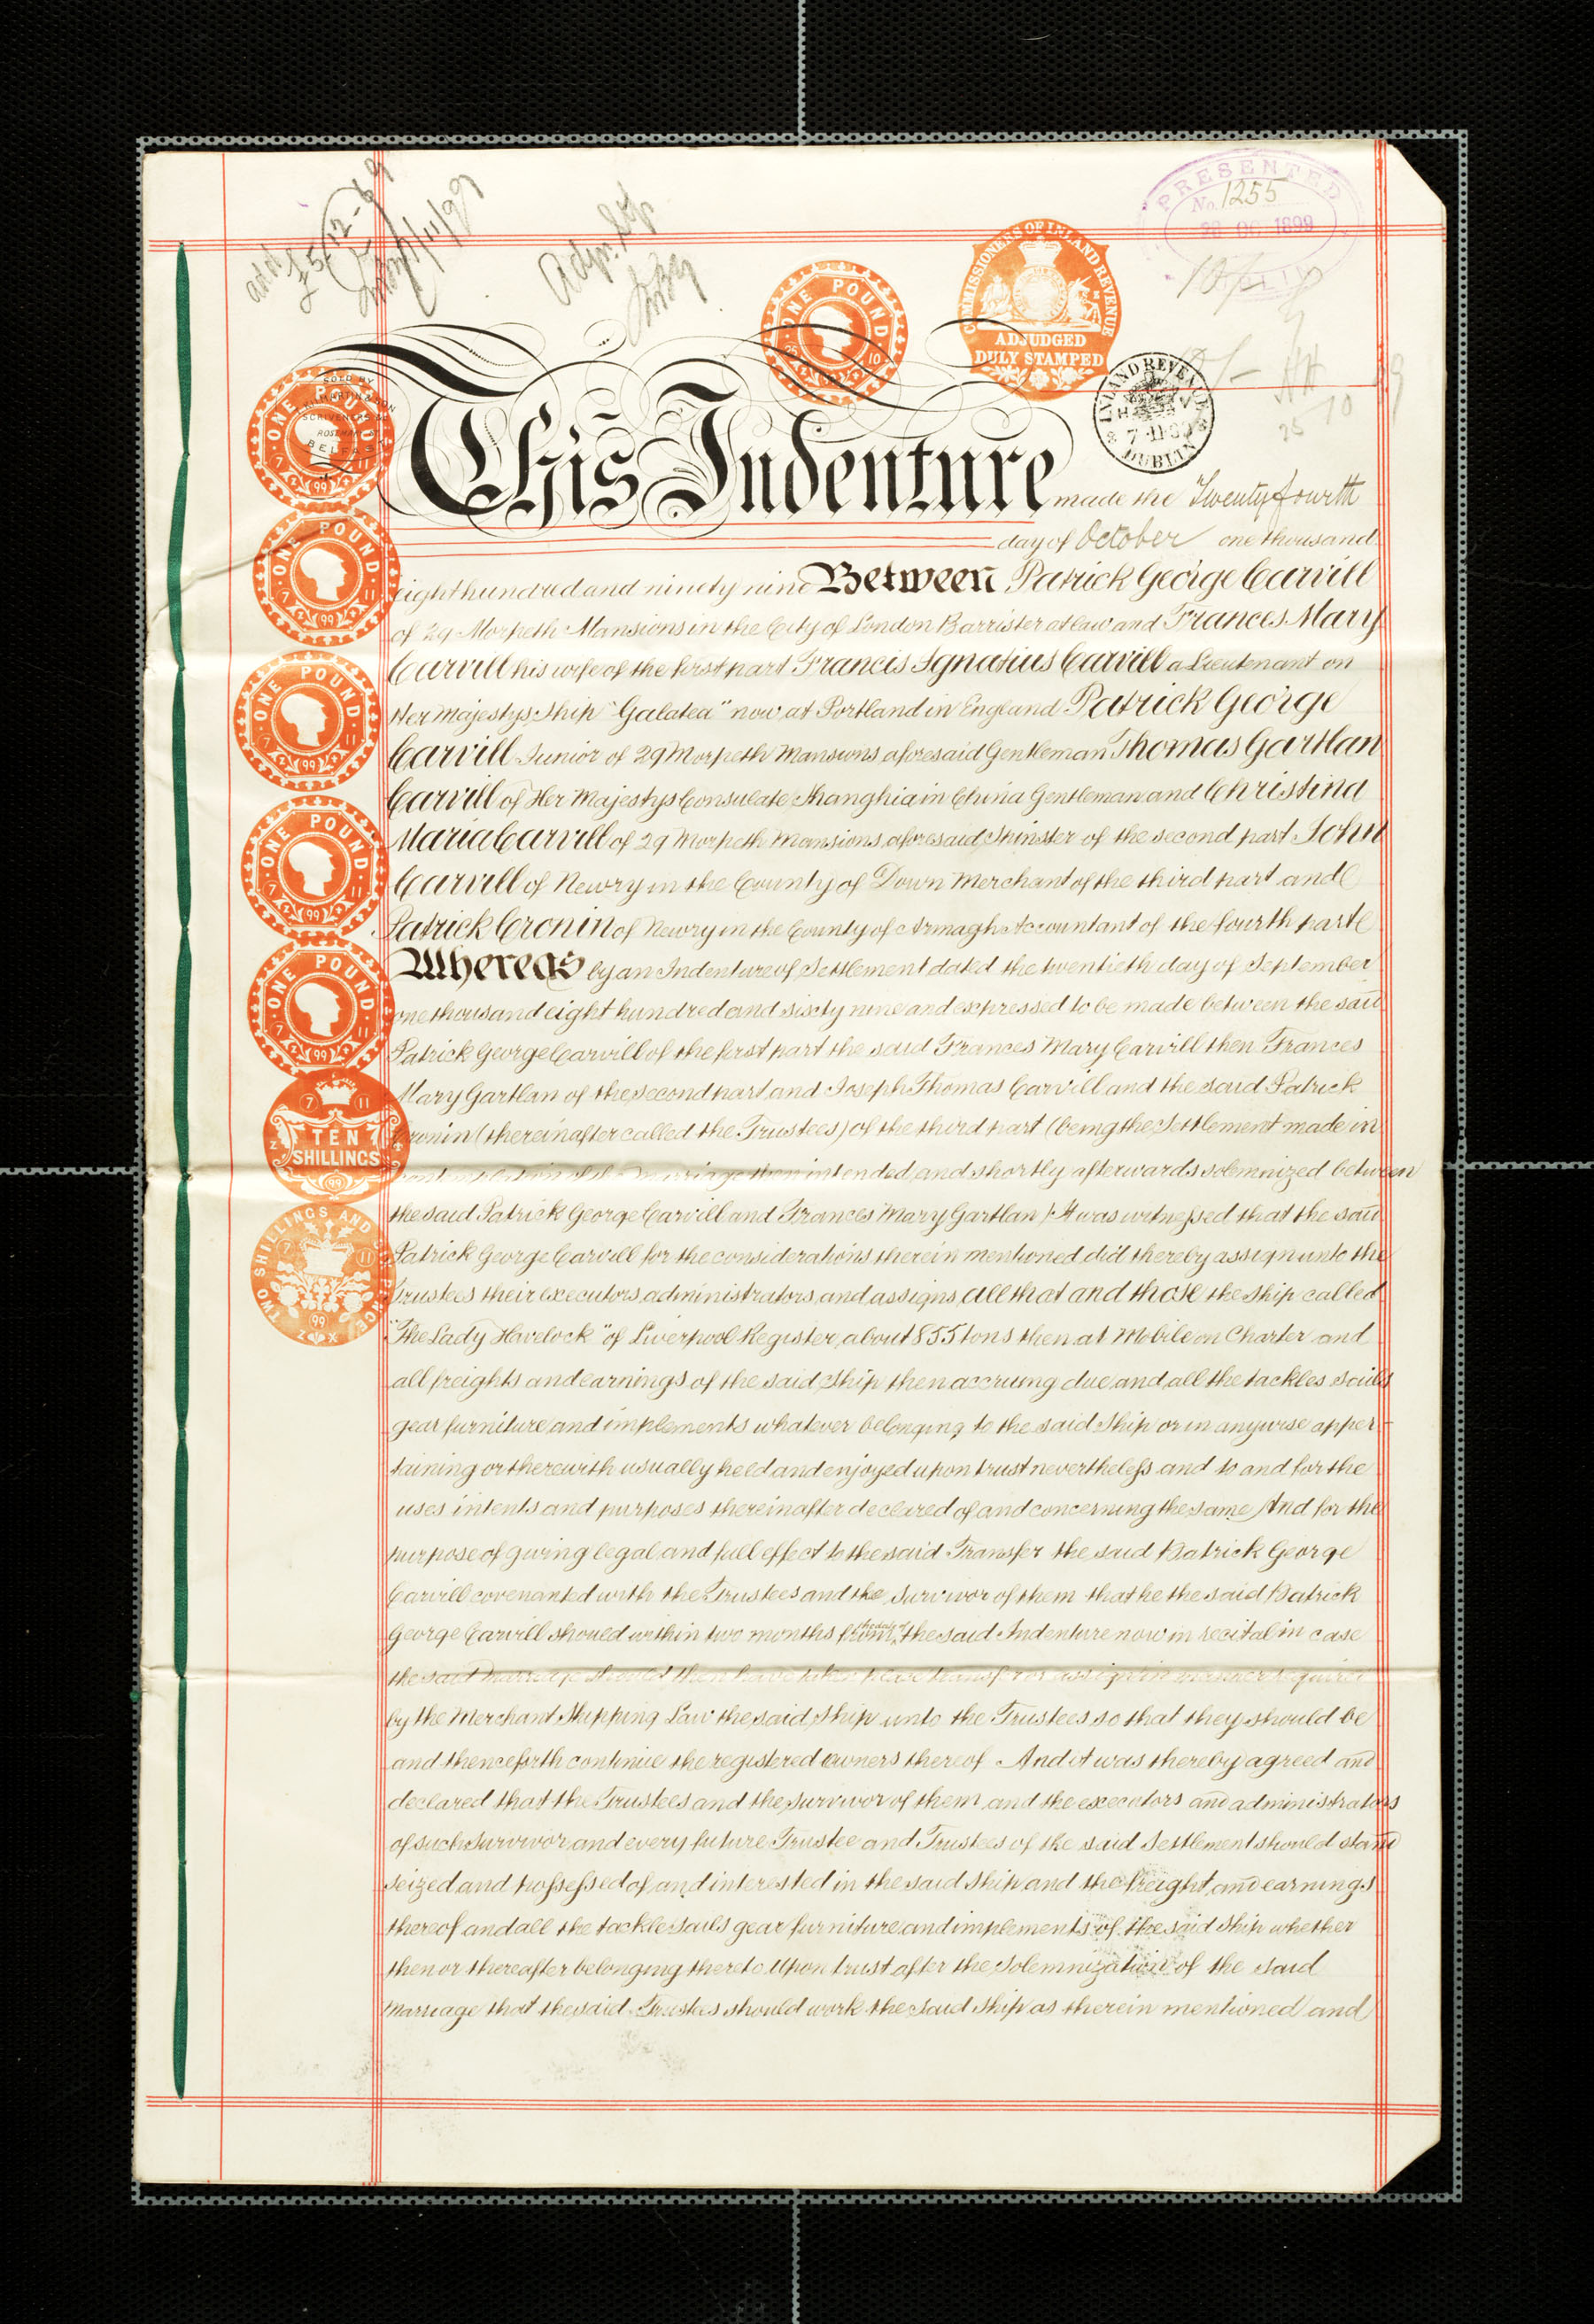 PRESENTED
No. 1255
1899
COMMISSIONERS OF INLAND REVENUE
ADJUDGED
DULY STAMPED
ONE POUND
25 10
INLAND REVENUE
7 11 99
DUBLIN
SOLD BY
MARTIN & SON
SCRIVENERS
ROSEMARY ST
BELFAST
ONE POUND
7 11
99
This Indenture made the Twentyfourth
day of October one thousand
eight hundred and ninety nine Between Patrick George Carvill
of 29 Morpeth Mansions in the City of London Barrister at law and Frances Mary
Carvill his wife of the first part Francis Ignatius Carvill a Lieutenant on
Her Majestys Ship "Galatea" now at Portland in England Patrick George
Carvill Junior of 29 Morpeth Mansions aforesaid Gentleman Thomas Gartlan
Carvill of Her Majestys Consulate Shanghia in China Gentleman and Christina
Maria Carvill of 29 Morpeth Mansions aforesaid Spinster of the second part John
Carvill of Newry in the County of Down Merchant of the third part and
Patrick Cronin of Newry in the County of Armagh Accountant of the fourth part
Whereas by an Indenture of Settlement dated the twentieth day of September
one thousand eight hundred and sixty nine and expressed to be made between the said
Patrick George Carvill of the first part the said Frances Mary Carvill then Frances
Mary Gartlan of the second part and Joseph Thomas Carvill and the said Patrick
Cronin (thereinafter called the Trustees) of the third part (being the Settlement made in
contemplation of the marriage then intended and shortly afterwards solemnized between
the said Patrick George Carvill and Frances Mary Gartlan) It was witnessed that the said
Patrick George Carvill for the considerations therein mentioned did thereby assign unto the
Trustees their executors administrators and assigns all that and those the ship called
"The Lady Havelock" of Liverpool Register about 855 tons then at Mobile on Charter and
all freights and earnings of the said ship then accruing due and all the tackles sails
gear furniture and implements whatever belonging to the said Ship or in anywise apper-
taining or therewith usually held and enjoyed upon trust nevertheless and to and for the
uses intents and purposes thereinafter declared of and concerning the same And for the
purpose of giving legal and full effect to the said Transfer the said Patrick George
Carvill covenanted with the Trustees and the Survivor of them that he the said Patrick
George Carvill should within two months from the date of the said Indenture now in recital in case
the said marriage should then have taken place transfer or assign in manner required
by the Merchant Shipping Law the said ship unto the Trustees so that they should be
and thenceforth continue the registered owners thereof And it was thereby agreed and
declared that the Trustees and the survivor of them and the executors and administrators
of such survivor and every future Trustee and Trustees of the said Settlement should stand
seized and possessed of and interested in the said Ship and the freight and earnings
thereof and all the tackle sails gear furniture and implements of the said Ship whether
then or thereafter belonging thereto Upon trust after the Solemnization of the said
Marriage that the said Trustees should work the said Ship as therein mentioned and
ONE POUND
7 11
99
ONE POUND
7 11
99
ONE POUND
7 11
99
ONE POUND
7 11
99
7 11
TEN
SHILLINGS
99
TWO SHILLINGS AND
7 11
99